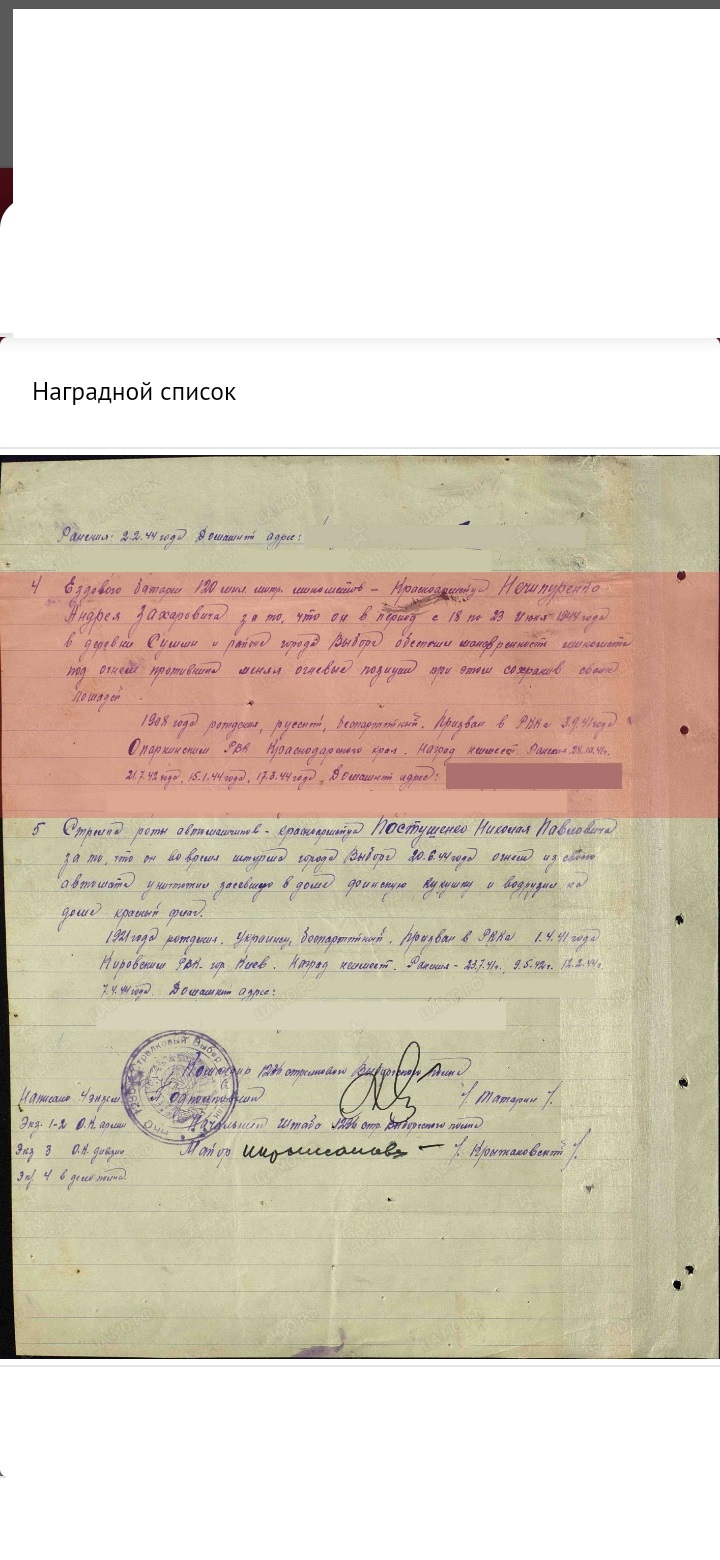 Наградной список
Ранения: 2.2.44 года Домашний адрес:
4 Ездового батареи 120 мил. метр. минометов - Красноармейца Нечипуренко
Андрея Захаровича за то, что он в период с 18 по 23 Июня 1944 года
в деревни Сумми и районе города Выборг обеспечил маневренность миномета
под огнем противника менял огневые позиции при этом сохранив своих
лошадей
1908 года рождения, русский, беспартийный. Призван в РККА 3.9.41 года
РВК Краснодарского края. Наград неимеет. Ранения 28.10.41г.
21.7.42 года, 15.1.44 года, 17.3.44 года, Домашний адрес:
5 Стрелка роты автоматчиков - красноармейца Постушенко Николая Павловича
за то, что он во время штурма города Выборг 20.6.44 года огнем из своего
автомата уничтожил засевшую в доме финскую кукушку и водрузил на
доме красный флаг.
1921 года рождения. Украинец, беспартийный. Призван в РККА 1.4.41 года
Кировским РВК гор Киев. Наград неимеет. Ранения - 23.7.41г. 9.5.42г. 12.2.44г.
7.4.44 года. Домашний адрес:
1236 стрелкового Выборгского полка
Написано 4 экзем. Подполковник /. Татарин /.
Экз. 1-2 О.К. армии Начальник Штаба 1236 стр. Выборгского полка
Экз 3 О.К. дивизии Майор /. Крыжановский /.
Экз 4 в дело полка.